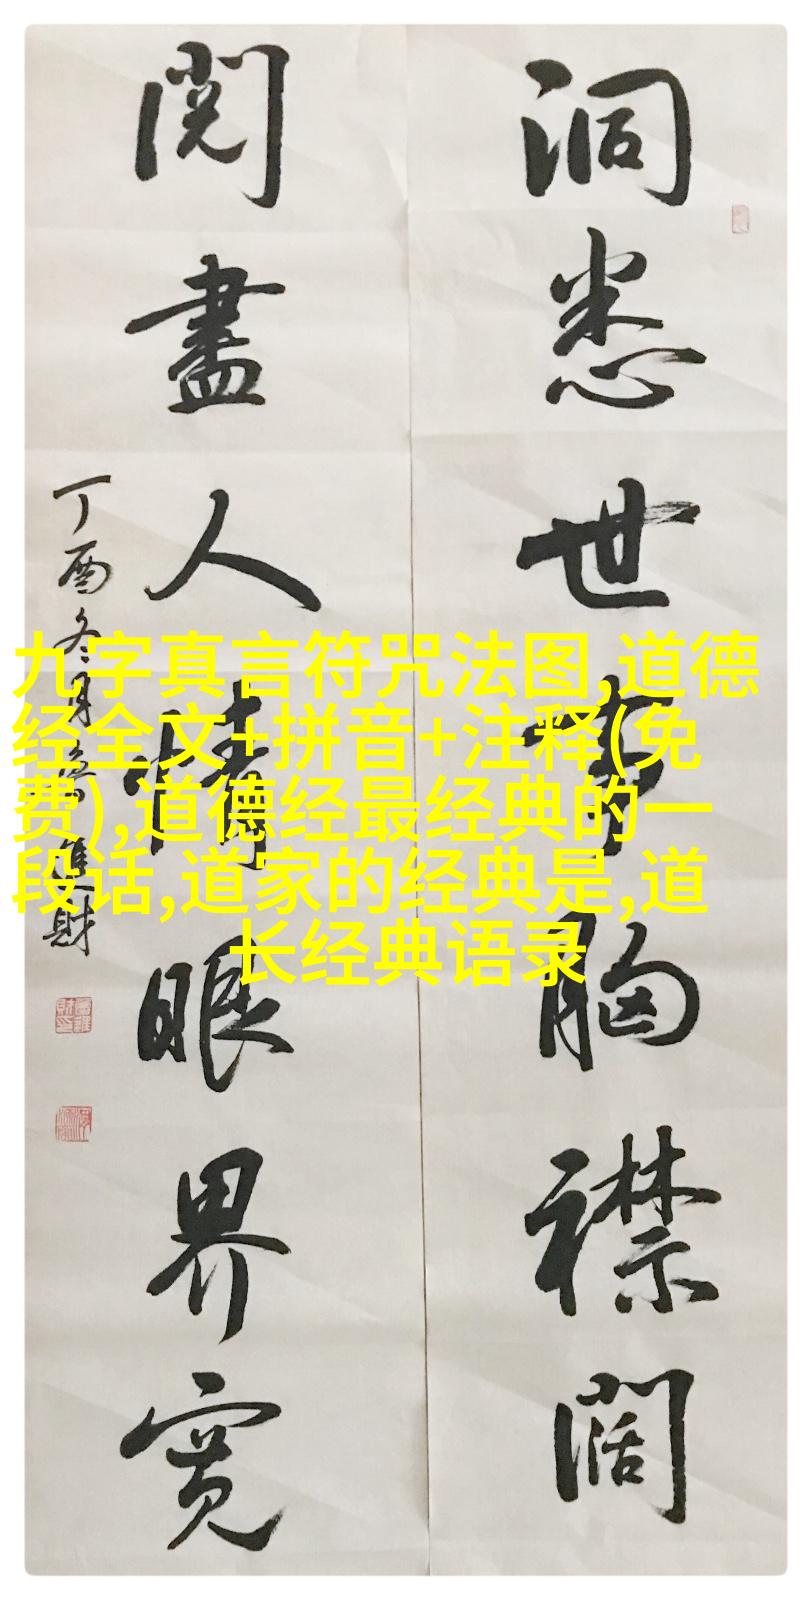 洞悉世事胸襟阔
閱盡人情眼界寬
丁酉冬月
進財
九字真言符咒法图,道德
经全文+拼音+注释(免
费),道德经最经典的一
段话,道家的经典是,道
长经典语录